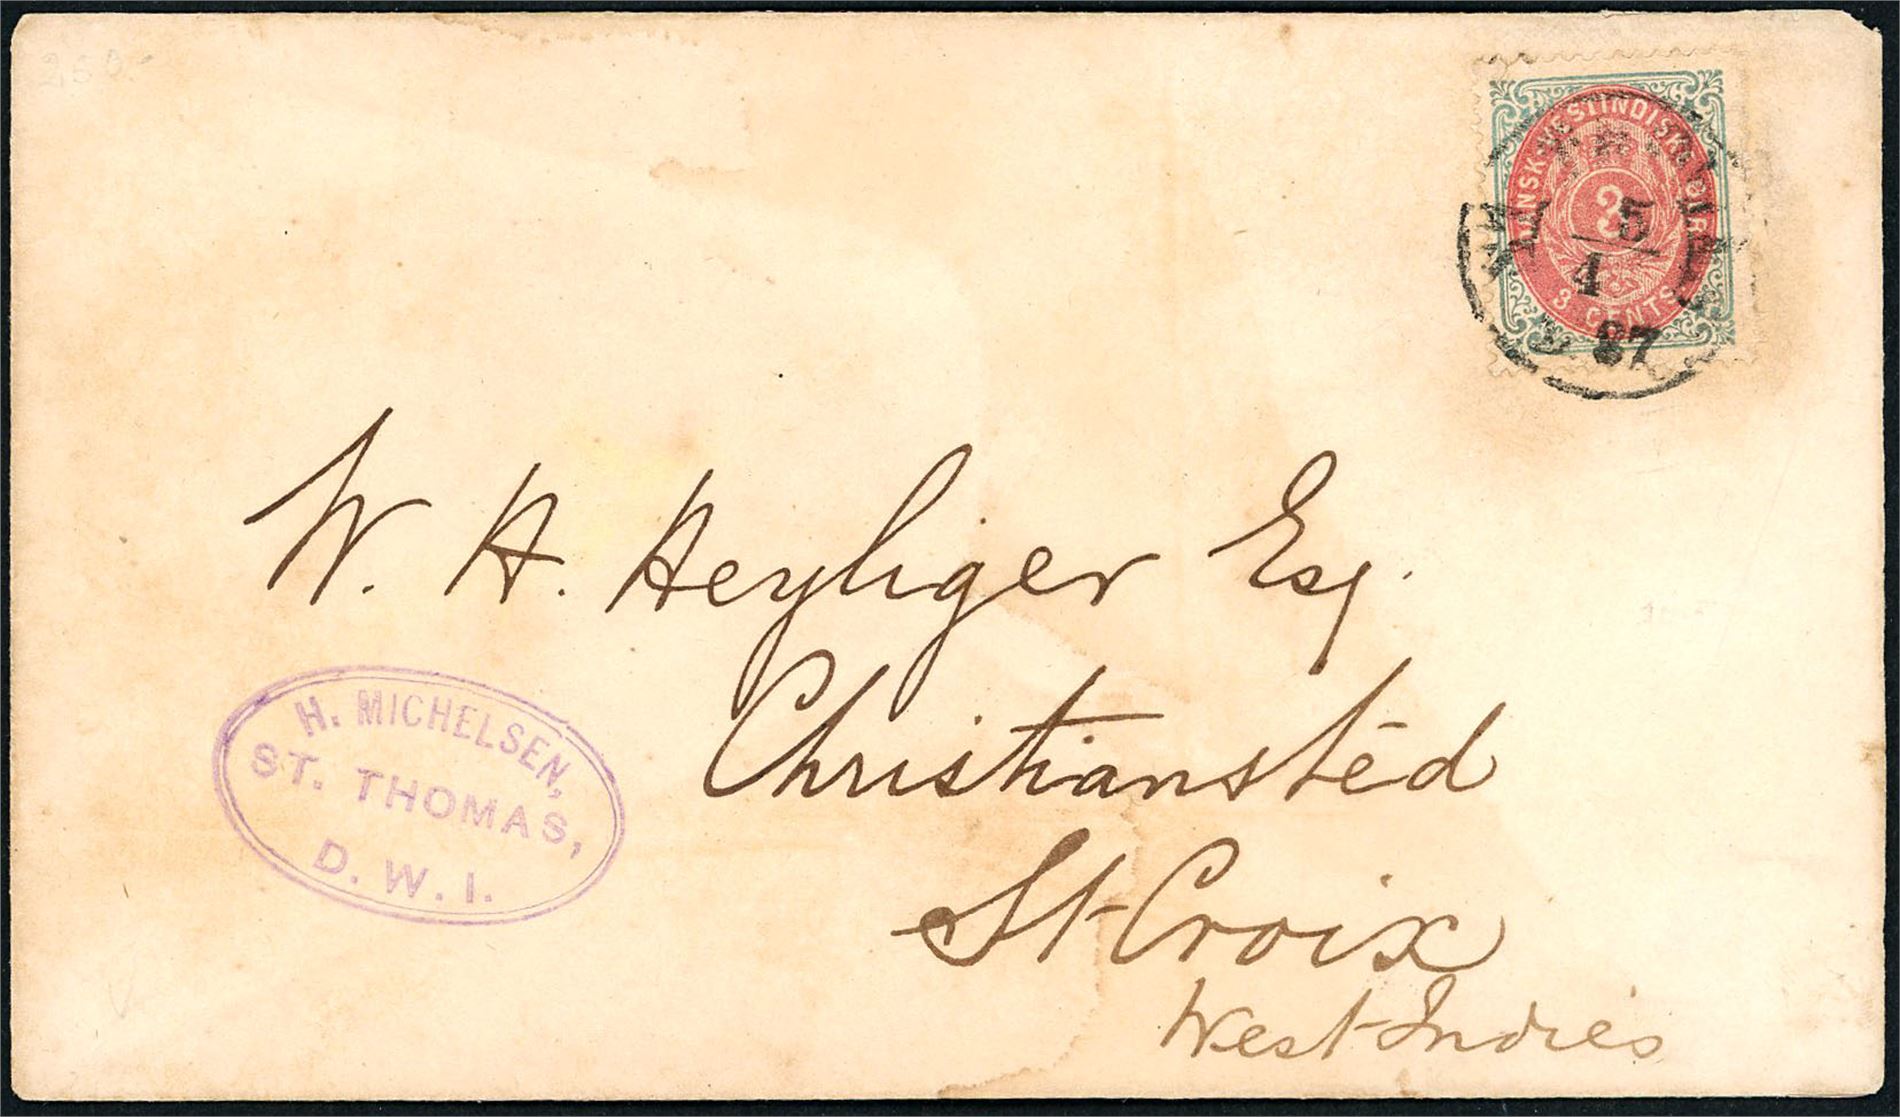 250.-
DANSK-VESTINDISKE ØER
3
3 CENTS
5
4
87
W. H. Heyliger Esq.
Christiansted
St Croix
West Indies
H. MICHELSEN,
ST. THOMAS,
D. W. I.